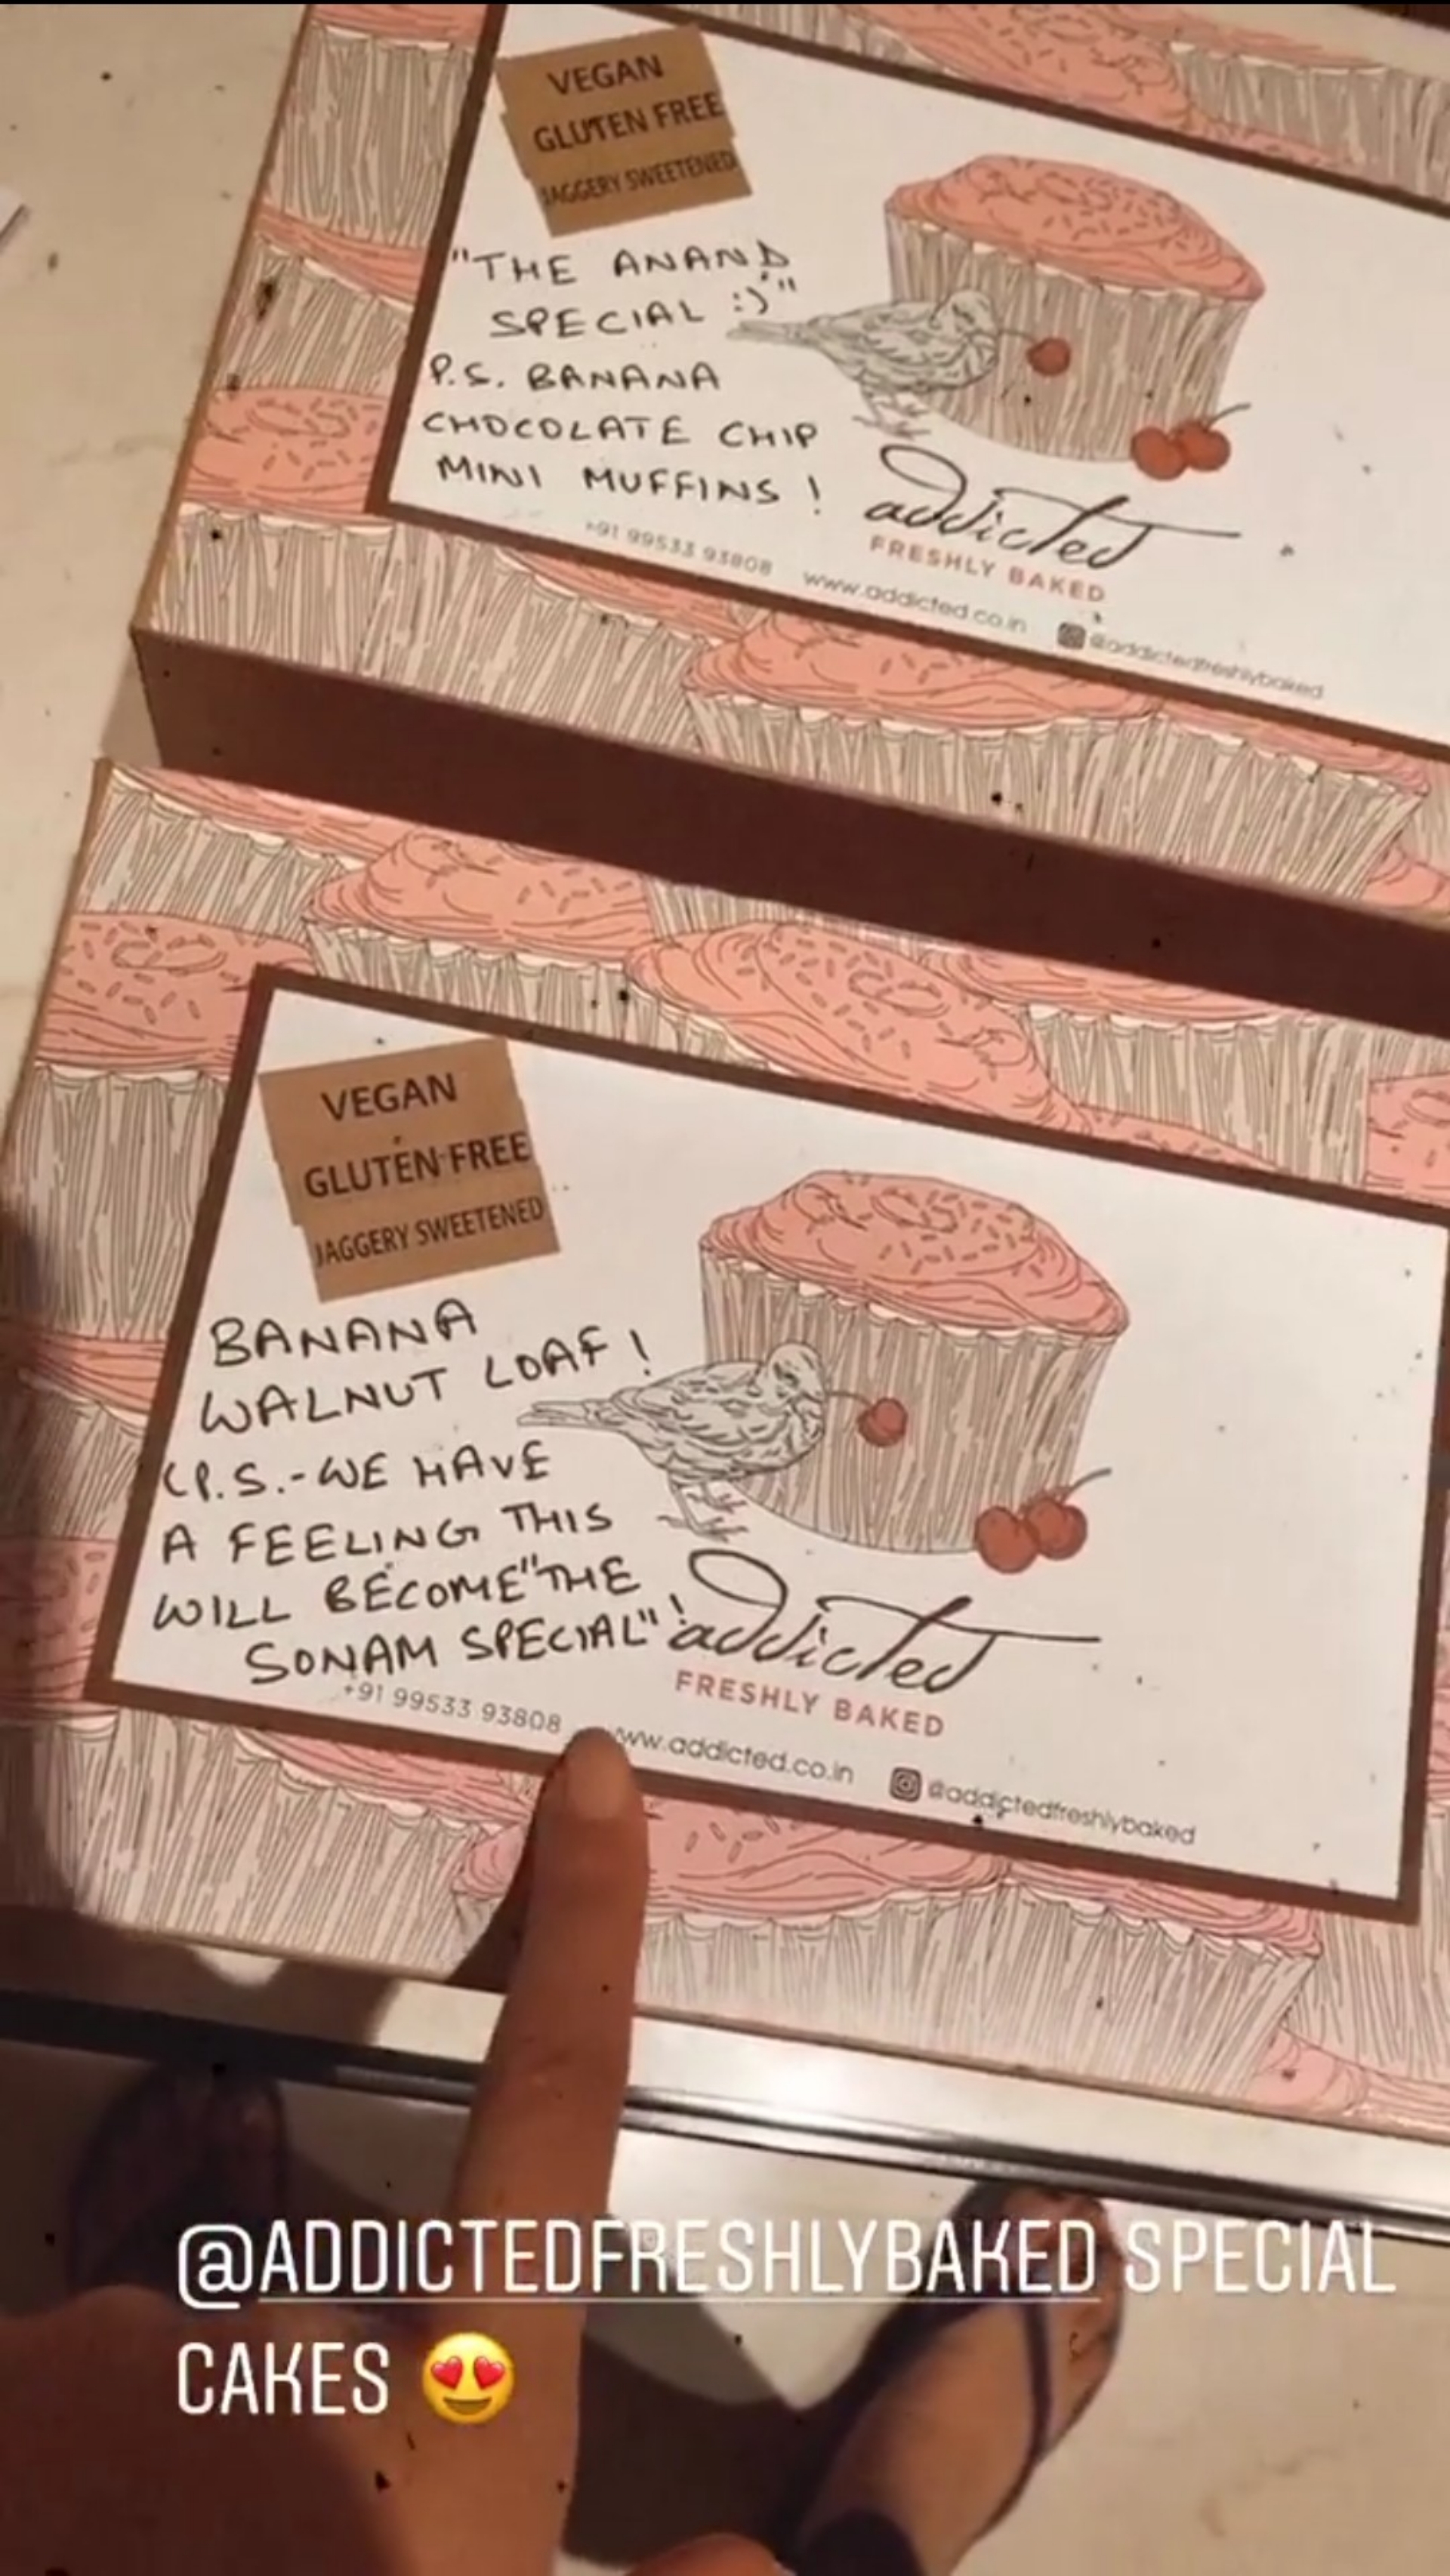 VEGAN
GLUTEN FREE
JAGGERY SWEETENED
"THE ANAND
SPECIAL :)"
P.S. BANANA
CHOCOLATE CHIP
MINI MUFFINS !
addicted
FRESHLY BAKED
+91 99533 93808 www.addicted.co.in @addictedfreshlybaked
VEGAN
GLUTEN FREE
JAGGERY SWEETENED
BANANA
WALNUT LOAF !
(P.S.-WE HAVE
A FEELING THIS
WILL BECOME "THE
SONAM SPECIAL" !
addicted
FRESHLY BAKED
+91 99533 93808 www.addicted.co.in @addictedfreshlybaked
@ADDICTEDFRESHLYBAKED SPECIAL
CAKES 😍